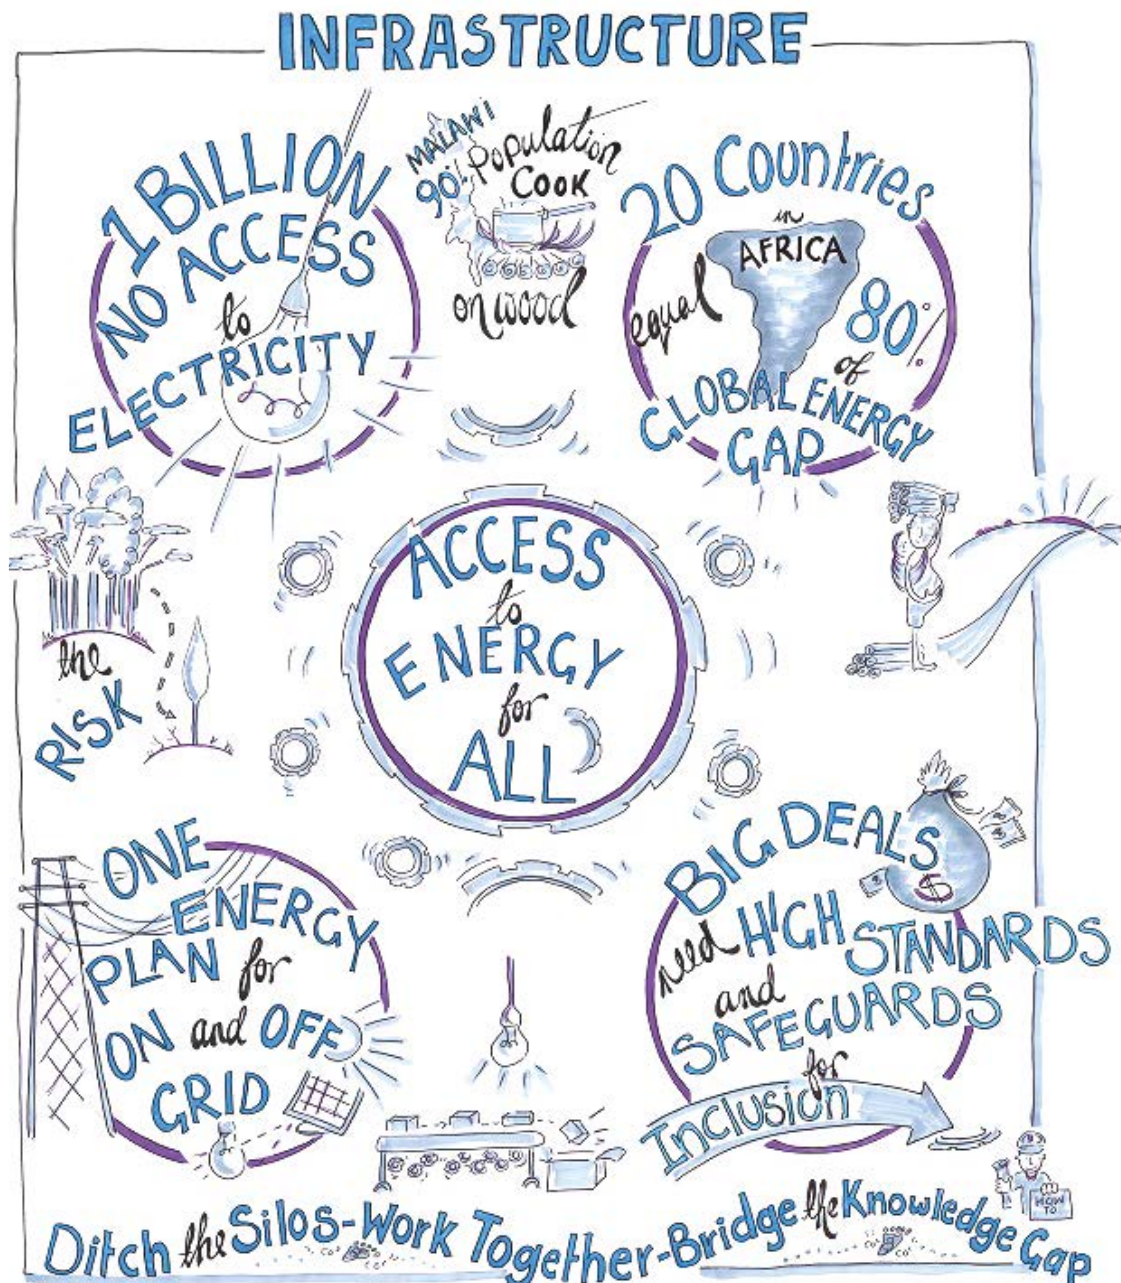 INFRASTRUCTURE
1 BILLION
NO ACCESS
to
ELECTRICITY
MALAWI
90% Population
COOK
on wood
20 Countries
in
AFRICA
equal
80%
of
GLOBAL ENERGY
GAP
the
RISK
ACCESS
to
ENERGY
for
ALL
ONE
ENERGY
PLAN for
ON and OFF
GRID
BIG DEALS
$
need HIGH STANDARDS
and
SAFEGUARDS
for
Inclusion
HOW
TO
Ditch the Silos-Work Together-Bridge the Knowledge Gap